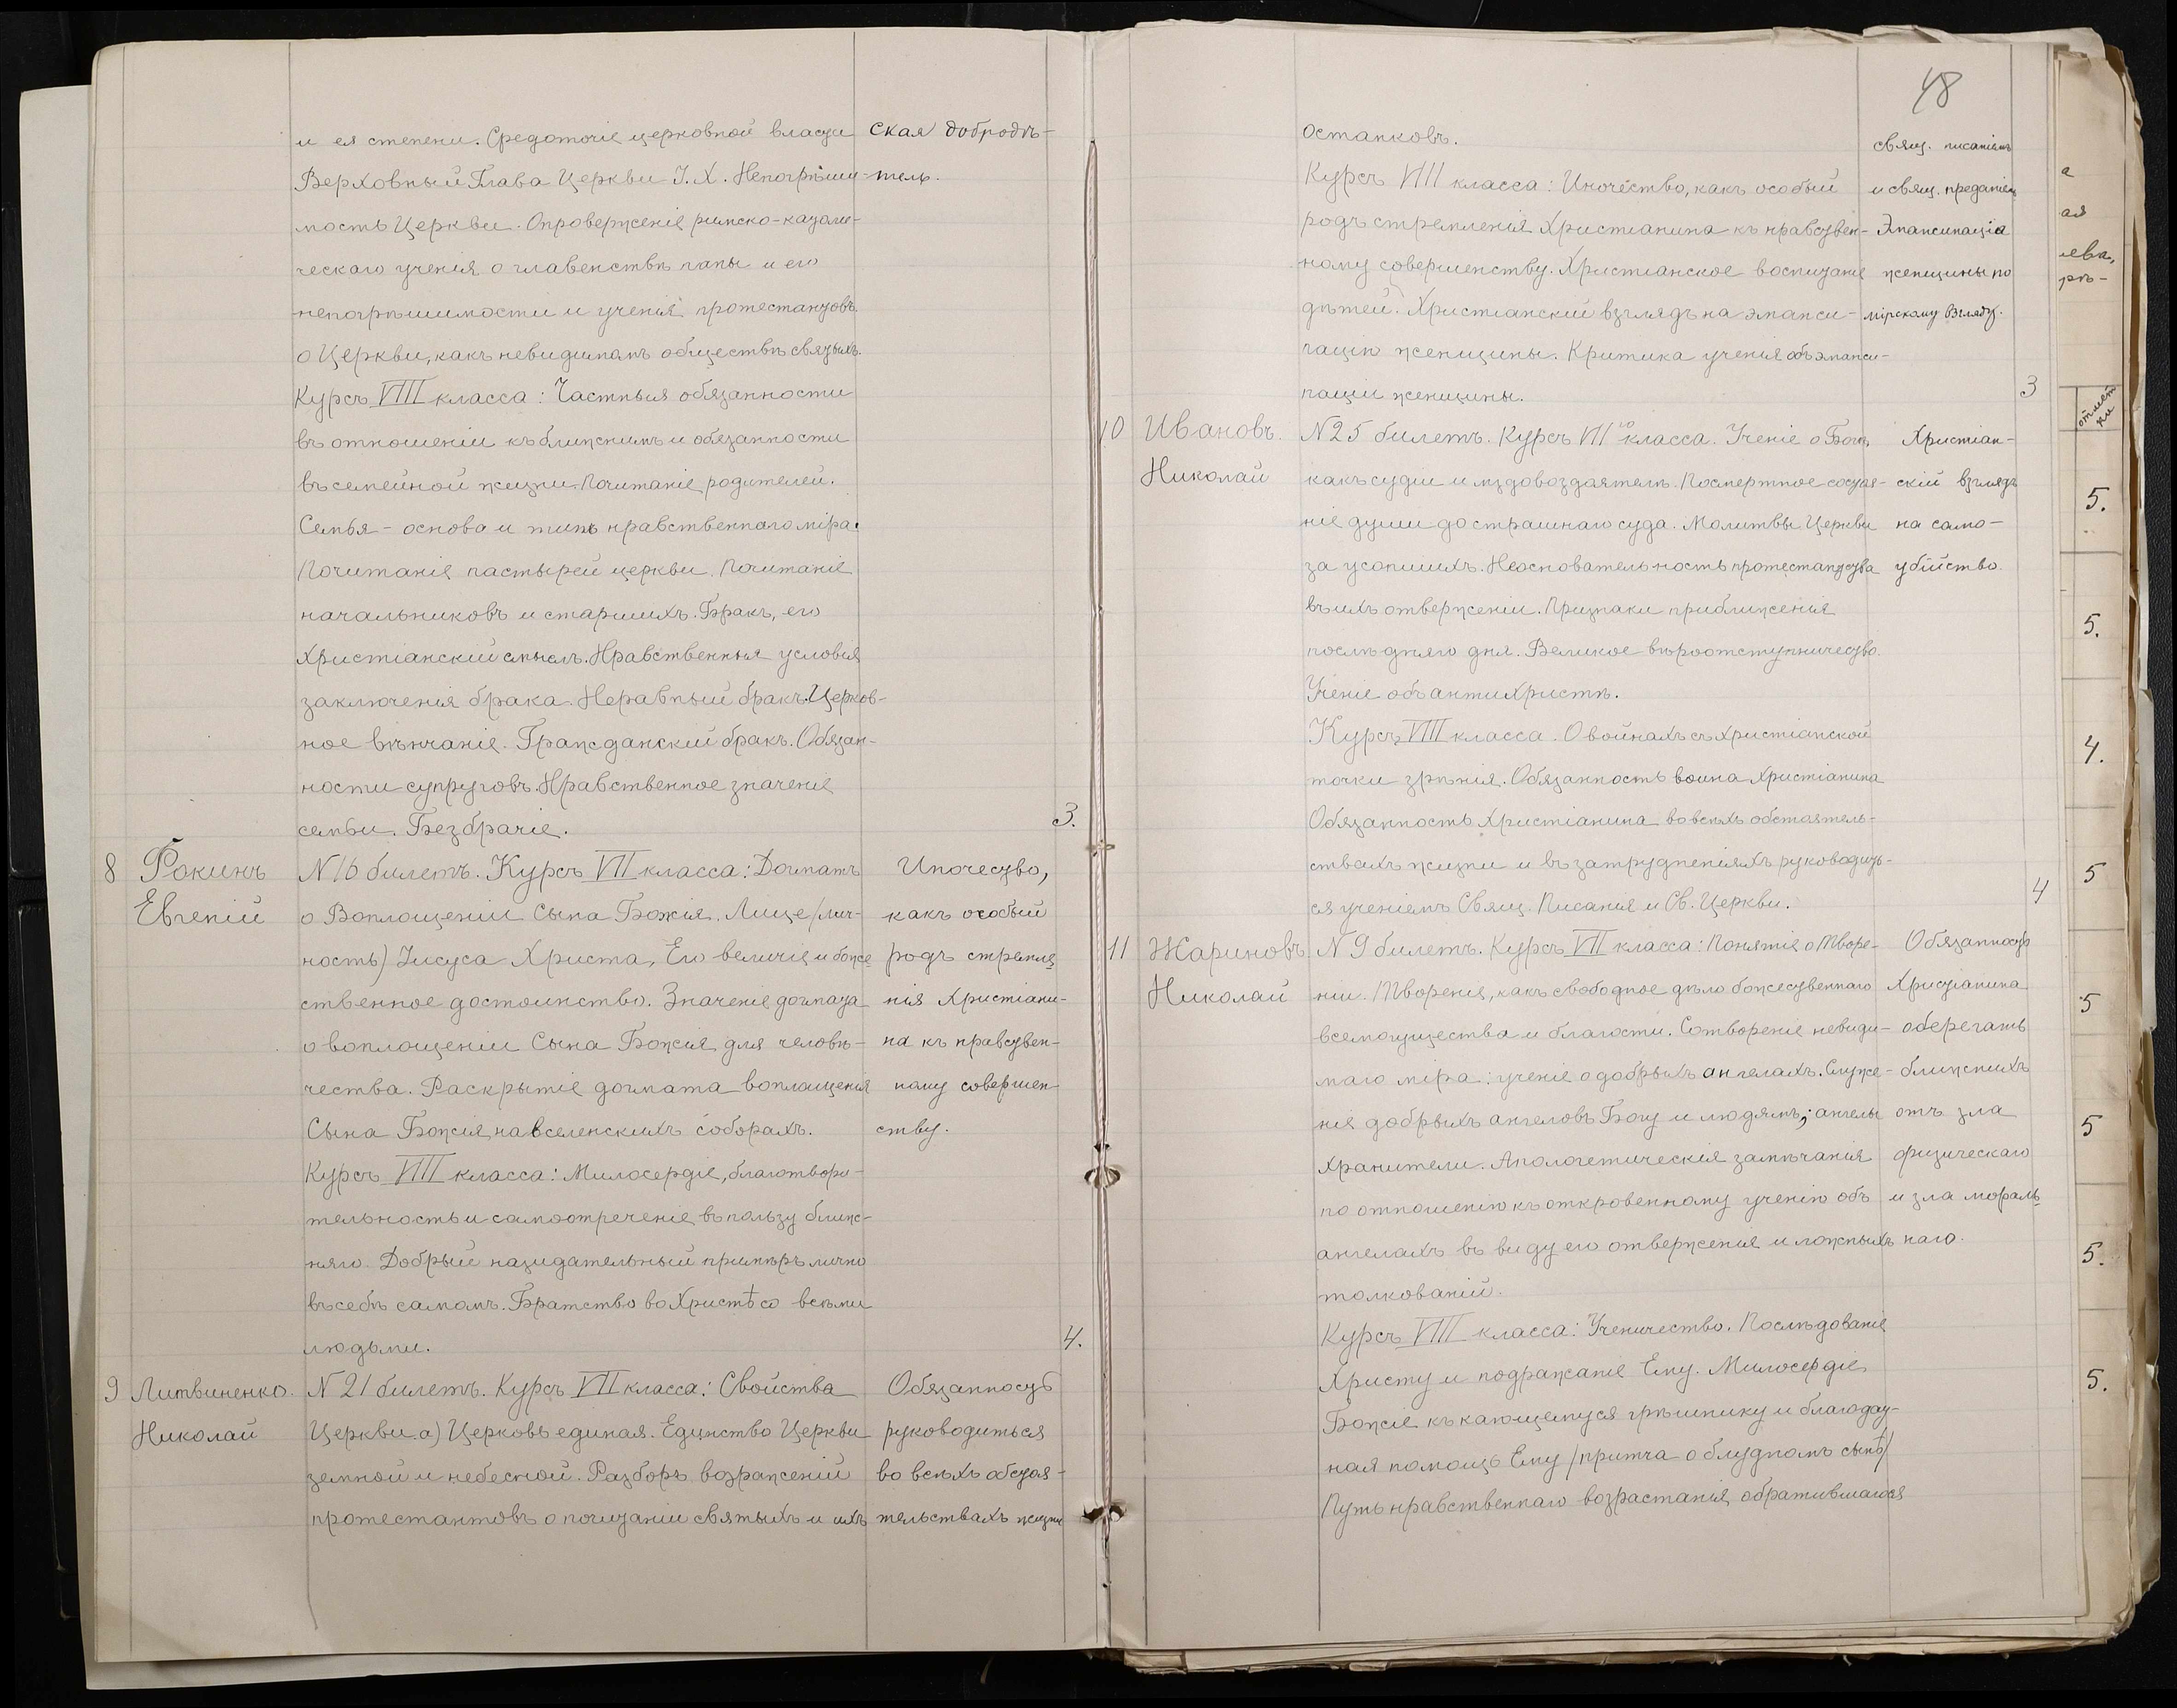 и ея степени. Средоточіе церковной власти
Верховный Глава Церкви І. Х. Непогрѣши-
мость Церкви. Опроверженіе римско-католи-
ческаго ученія о главенствѣ папы и его
непогрѣшимости и ученія протестантовъ
о Церкви, какъ невидимомъ обществѣ святыхъ.
Курсъ VIII класса: Частныя обязанности
въ отношеніи къ ближнимъ и обязанности
въ семейной жизни. Почитаніе родителей.
Семья - основа и типъ нравственнаго міра.
Почитаніе пастырей церкви. Почитаніе
начальниковъ и старшихъ. Бракъ, его
христіанскій смыслъ. Нравственныя условія
заключенія брака. Неравный бракъ. Церков-
ное вѣнчаніе. Гражданскій бракъ. Обязан-
ности супруговъ. Нравственное значеніе
семьи. Безбрачіе.
ская добродѣ-
тель.
3.
8
Фокинъ
Евгеній
N 16 билетъ. Курсъ VII класса: Догматъ
о Воплощеніи Сына Божія. Лице /лич-
ность) Іисуса Христа, Его величіе и боже
ственное достоинство. Значеніе догмата
о воплощеніи Сына Божія для человѣ-
чества. Раскрытіе догмата воплощенія
Сына Божія на вселенскихъ соборахъ.
Курсъ VIII класса: Милосердіе, благотвори-
тельность и самоотреченіе въ пользу ближ-
няго. Добрый назидательный примѣръ лично
въ себѣ самомъ. Братство во Христѣ со всѣми
людьми.
Иночество,
какъ особый
родъ стремле
нія Христіани-
на къ нравствен-
ному совершен-
ству.
4.
9
Литвиненко.
Николай
N 21 билетъ. Курсъ VII класса: Свойства
Церкви. а) Церковь единая. Единство Церкви
земной и небесной. Разборъ возраженій
протестантовъ о почитаніи святыхъ и ихъ
Обязанность
руководиться
во всѣхъ обстоя-
тельствахъ жизни
48
останковъ.
Курсъ VIII класса: Иночество, какъ особый
родъ стремленія Христіанина къ нравствен-
ному совершенству. Христіанское воспитаніе
дѣтей. Христіанскій взглядъ на эманси-
пацію женщины. Критика ученія объ эманси-
паціи женщины.
свящ. писаніемъ
и свящ. преданіемъ
Эмансипація
женщины по
мірскому взгляду.
3
10
Ивановъ.
Николай
N 25 билетъ. Курсъ VII го класса. Ученіе о Богѣ,
какъ судіи и мздовоздаятелѣ. Посмертное состоя-
ніе души до страшнаго суда. Молитвы Церкви
за усопшихъ. Неосновательность протестантства
въ ихъ отверженіи. Признаки приближенія
послѣдняго дня. Великое вѣроотступничество.
Ученіе объ антихристѣ.
Курсъ VIII класса. О войнахъ съ христіанской
точки зрѣнія. Обязанность воина Христіанина
Обязанность Христіанина во всѣхъ обстоятель-
ствахъ жизни и въ затрудненіяхъ руководить-
ся ученіемъ Свящ. Писанія и Св. Церкви.
Христіан-
скій взглядъ
на само-
убійство.
4
11
Жариновъ
Николай
N 9 билетъ. Курсъ VII класса: Понятіе о творе-
ніи. Твореніе, какъ свободное дѣло божественнаго
всемогущества и благости. Сотвореніе невиди-
маго міра: ученіе о добрыхъ ангелахъ. Служе-
ніе добрыхъ ангеловъ Богу и людямъ; ангелы
хранители. Апологетическія замѣчанія
по отношенію къ откровенному ученію объ
ангелахъ въ виду его отверженія и ложныхъ
толкованій.
Курсъ VIII класса: Ученичество. Послѣдованіе
Христу и подражаніе Ему. Милосердіе
Божіе къ кающемуся грѣшнику и благодат-
ная помощь Ему /притча о блудномъ сынѣ/
Путь нравственнаго возрастанія обратившагося
Обязанность
Христіанина
оберегать
ближнихъ
отъ зла
физическаго
и зла мораль
наго.
а
ая
лева,
рѣ-
отмѣт
ки
5.
5.
4.
5
5
5
5.
5.